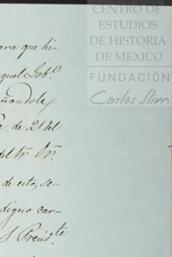 CENTRO DE
ESTUDIOS
DE HISTORIA
DE MEXICO
FUNDACIÓN
Carlos Slim
para que hi-
aquel Gob.º
de 21 del
del tr. Or.
de esto, se-
digno car-
S. Presid.te